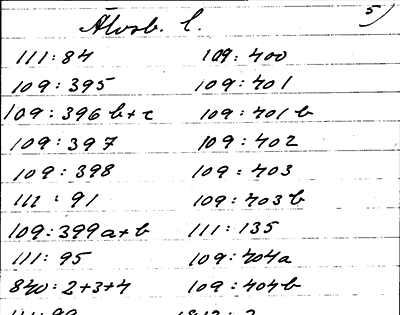 5)
Älvsb. l.
111:84 109:400
109:395 109:401
109:396 b+c 109:401 b
109:397 109:402
109:398 109:403
111:91 109:403 b
109:399 a+b 111:135
111:95 109:404a
840:2+3+4 109:404b